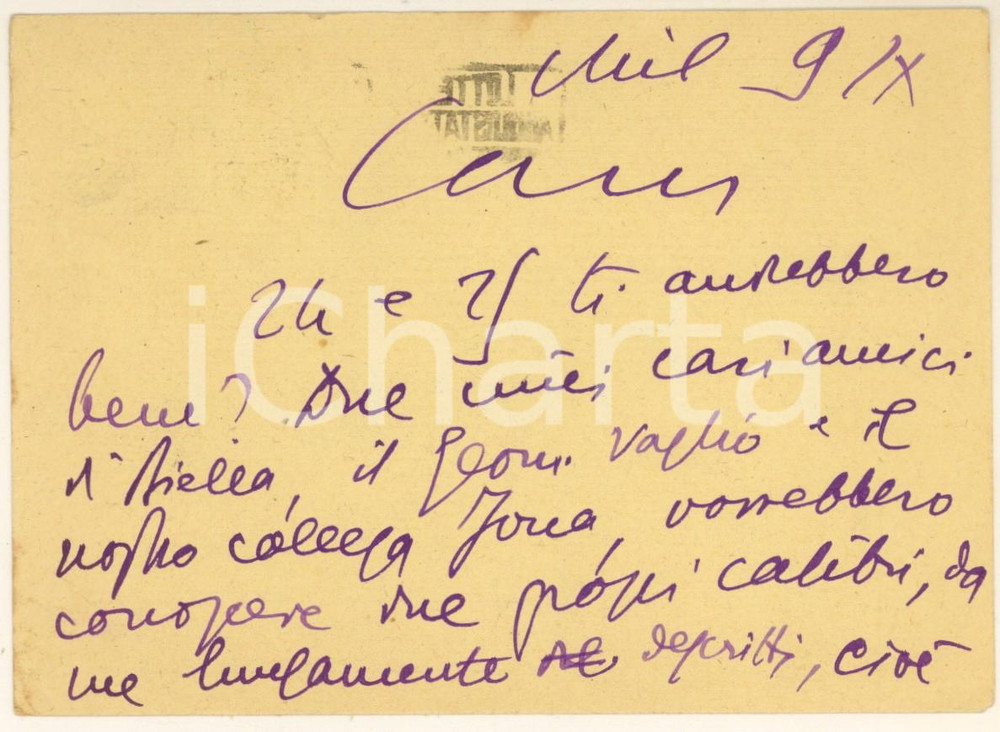 Mil 9 IX
Caro
24 e 25 ti andrebbero
bene? Due miei cari amici
di Biella, il geom. Vaglio e il
nostro collega Jona, vorrebbero
conoscere due grossi calibri, da
me lungamente descritti, cioè
iCharta